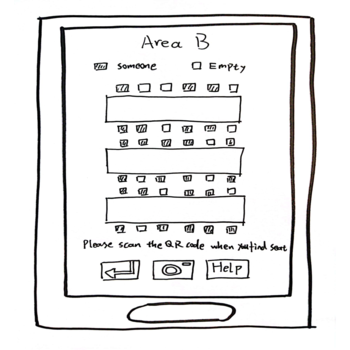 Area B
Someone Empty
Please scan the QR code when you find seat
Help